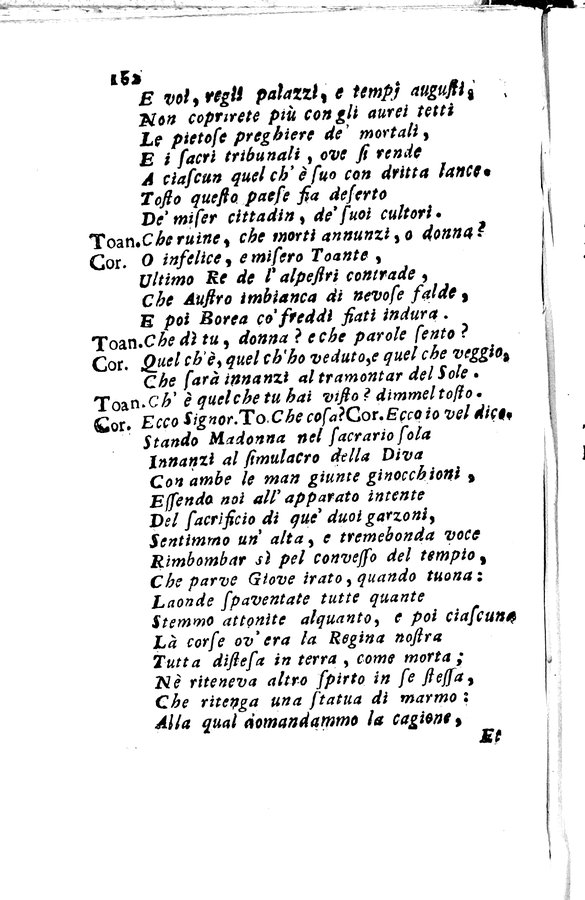 162
E voi, regii palazzi, e tempj augusti,
Non coprirete più con gli aurei tetti
Le pietoſe preghiere de' mortali,
E i ſacri tribunali, ove ſi rende
A ciaſcun quel ch' è ſuo con dritta lance.
Toſto queſto paeſe ſia deſerto
De' miſer cittadin, de' ſuoi cultori.
Toan. Che ruine, che morti annunzi, o donna?
Cor. O infelice, e miſero Toante,
Ultimo Re de l' alpeſtri contrade,
Che Auſtro imbianca di nevoſe falde,
E poi Borea co' freddi fiati indura.
Toan. Che dì tu, donna? e che parole ſento?
Cor. Quel ch' è, quel ch' ho veduto, e quel che veggio,
Che ſarà innanzi al tramontar del Sole.
Toan. Ch' è quel che tu hai viſto? dimmel toſto.
Cor. Ecco Signor. To. Che coſa? Cor. Ecco io vel dico.
Stando Madonna nel ſacrario ſola
Innanzi al ſimulacro della Diva
Con ambe le man giunte ginocchioni,
Eſſendo noi all' apparato intente
Del ſacrificio di que' duoi garzoni,
Sentimmo un' alta, e tremebonda voce
Rimbombar sì pel conveſſo del tempio,
Che parve Giove irato, quando tuona:
Laonde ſpaventate tutte quante
Stemmo attonite alquanto, e poi ciaſcuna
Là corſe ov' era la Regina noſtra
Tutta diſteſa in terra, come morta;
Nè riteneva altro ſpirto in ſe ſteſſa,
Che ritenga una ſtatua di marmo:
Alla qual domandammo la cagione,
Et